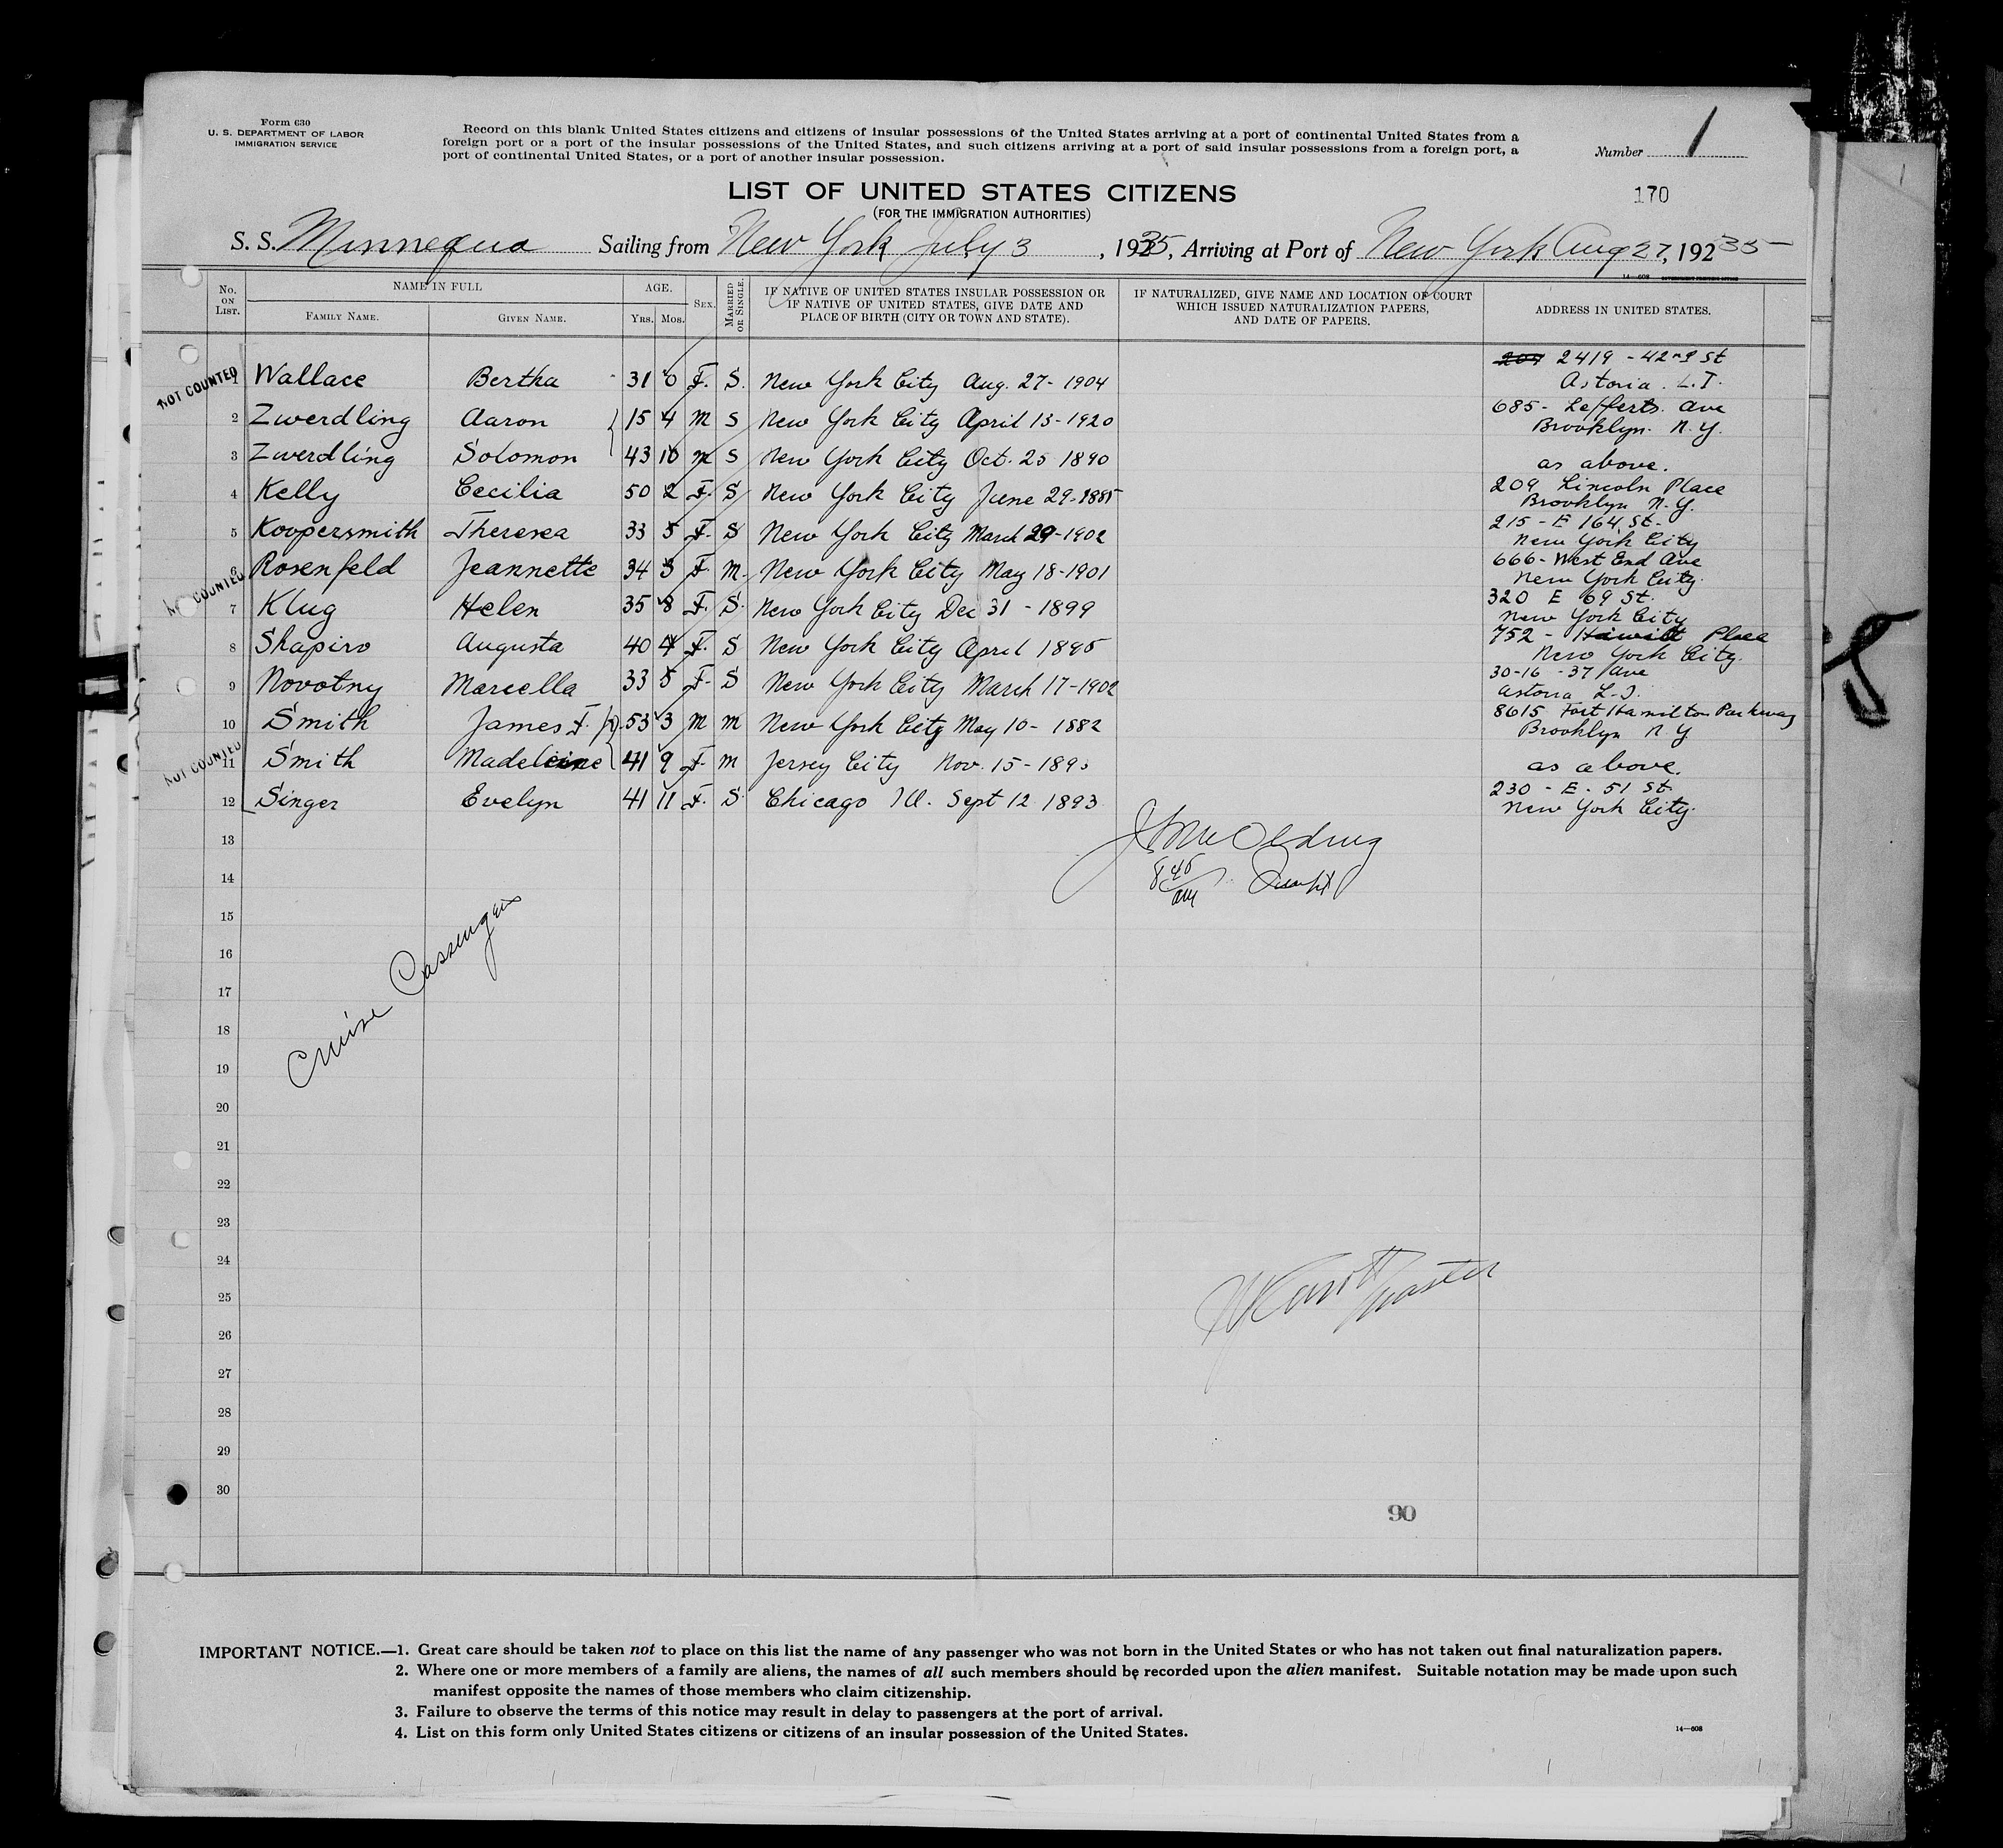 Form 630
U. S. DEPARTMENT OF LABOR
IMMIGRATION SERVICE
Record on this blank United States citizens and citizens of insular possessions of the United States arriving at a port of continental United States from a
foreign port or a port of the insular possessions of the United States, and such citizens arriving at a port of said insular possessions from a foreign port, a
port of continental United States, or a port of another insular possession.
Number 1
170
LIST OF UNITED STATES CITIZENS
(FOR THE IMMIGRATION AUTHORITIES)
S. S. Minnequa Sailing from New York July 3, 1935, Arriving at Port of New York Aug 27, 19235
14—608 GOVERNMENT PRINTING OFFICE
No. ON LIST. NAME IN FULL FAMILY NAME. GIVEN NAME. AGE. Yrs. Mos. SEX. MARRIED OR SINGLE. IF NATIVE OF UNITED STATES INSULAR POSSESSION OR IF NATIVE OF UNITED STATES, GIVE DATE AND PLACE OF BIRTH (CITY OR TOWN AND STATE). IF NATURALIZED, GIVE NAME AND LOCATION OF COURT WHICH ISSUED NATURALIZATION PAPERS, AND DATE OF PAPERS. ADDRESS IN UNITED STATES.
NOT COUNTED
1 Wallace Bertha 31 0 F. S. New York City Aug. 27- 1904 2419 - 42nd St Astoria. L.I.
2 Zwerdling Aaron 15 4 M S New York City April 13-1920 685- Lefferts Ave Brooklyn. N.Y.
3 Zwerdling Solomon 43 10 M S New York City Oct. 25 1890 as above.
4 Kelly Cecilia 50 2 F. S New York City June 29-1885 209 Lincoln Place Brooklyn N.Y.
5 Koopersmith Theresa 33 5 F. S New York City March 29-1902 215 - E 164 St. New York City
6 Rosenfeld Jeannette 34 3 F. M. New York City May 18-1901 666- West End Ave New York City.
NOT COUNTED
7 Klug Helen 35 8 F. S. New York City Dec 31 - 1899 320 E 69 St. New York City
8 Shapiro Augusta 40 4 F. S New York City April 1895 752 - Place New York City.
9 Novotny Marcella 33 5 F. S New York City March 17-1902 30-16 -37 Ave Astoria L.I.
10 Smith James F. 53 3 M M New York City May 10- 1882 8615 Fort Hamilton Parkway Brooklyn N Y
NOT COUNTED
11 Smith Madeleine 41 9 F. M Jersey City Nov. 15-1893 as above.
12 Singer Evelyn 41 11 F. S. Chicago Ill. Sept 12 1893 230 - E. 51 St. New York City.
13
8 45 am
14
15
Cruise Passengers
16
17
18
19
20
21
22
23
24
Master
25
26
27
28
29
30
90
IMPORTANT NOTICE.—1. Great care should be taken not to place on this list the name of any passenger who was not born in the United States or who has not taken out final naturalization papers.
2. Where one or more members of a family are aliens, the names of all such members should be recorded upon the alien manifest. Suitable notation may be made upon such
manifest opposite the names of those members who claim citizenship.
3. Failure to observe the terms of this notice may result in delay to passengers at the port of arrival.
4. List on this form only United States citizens or citizens of an insular possession of the United States.
14—608